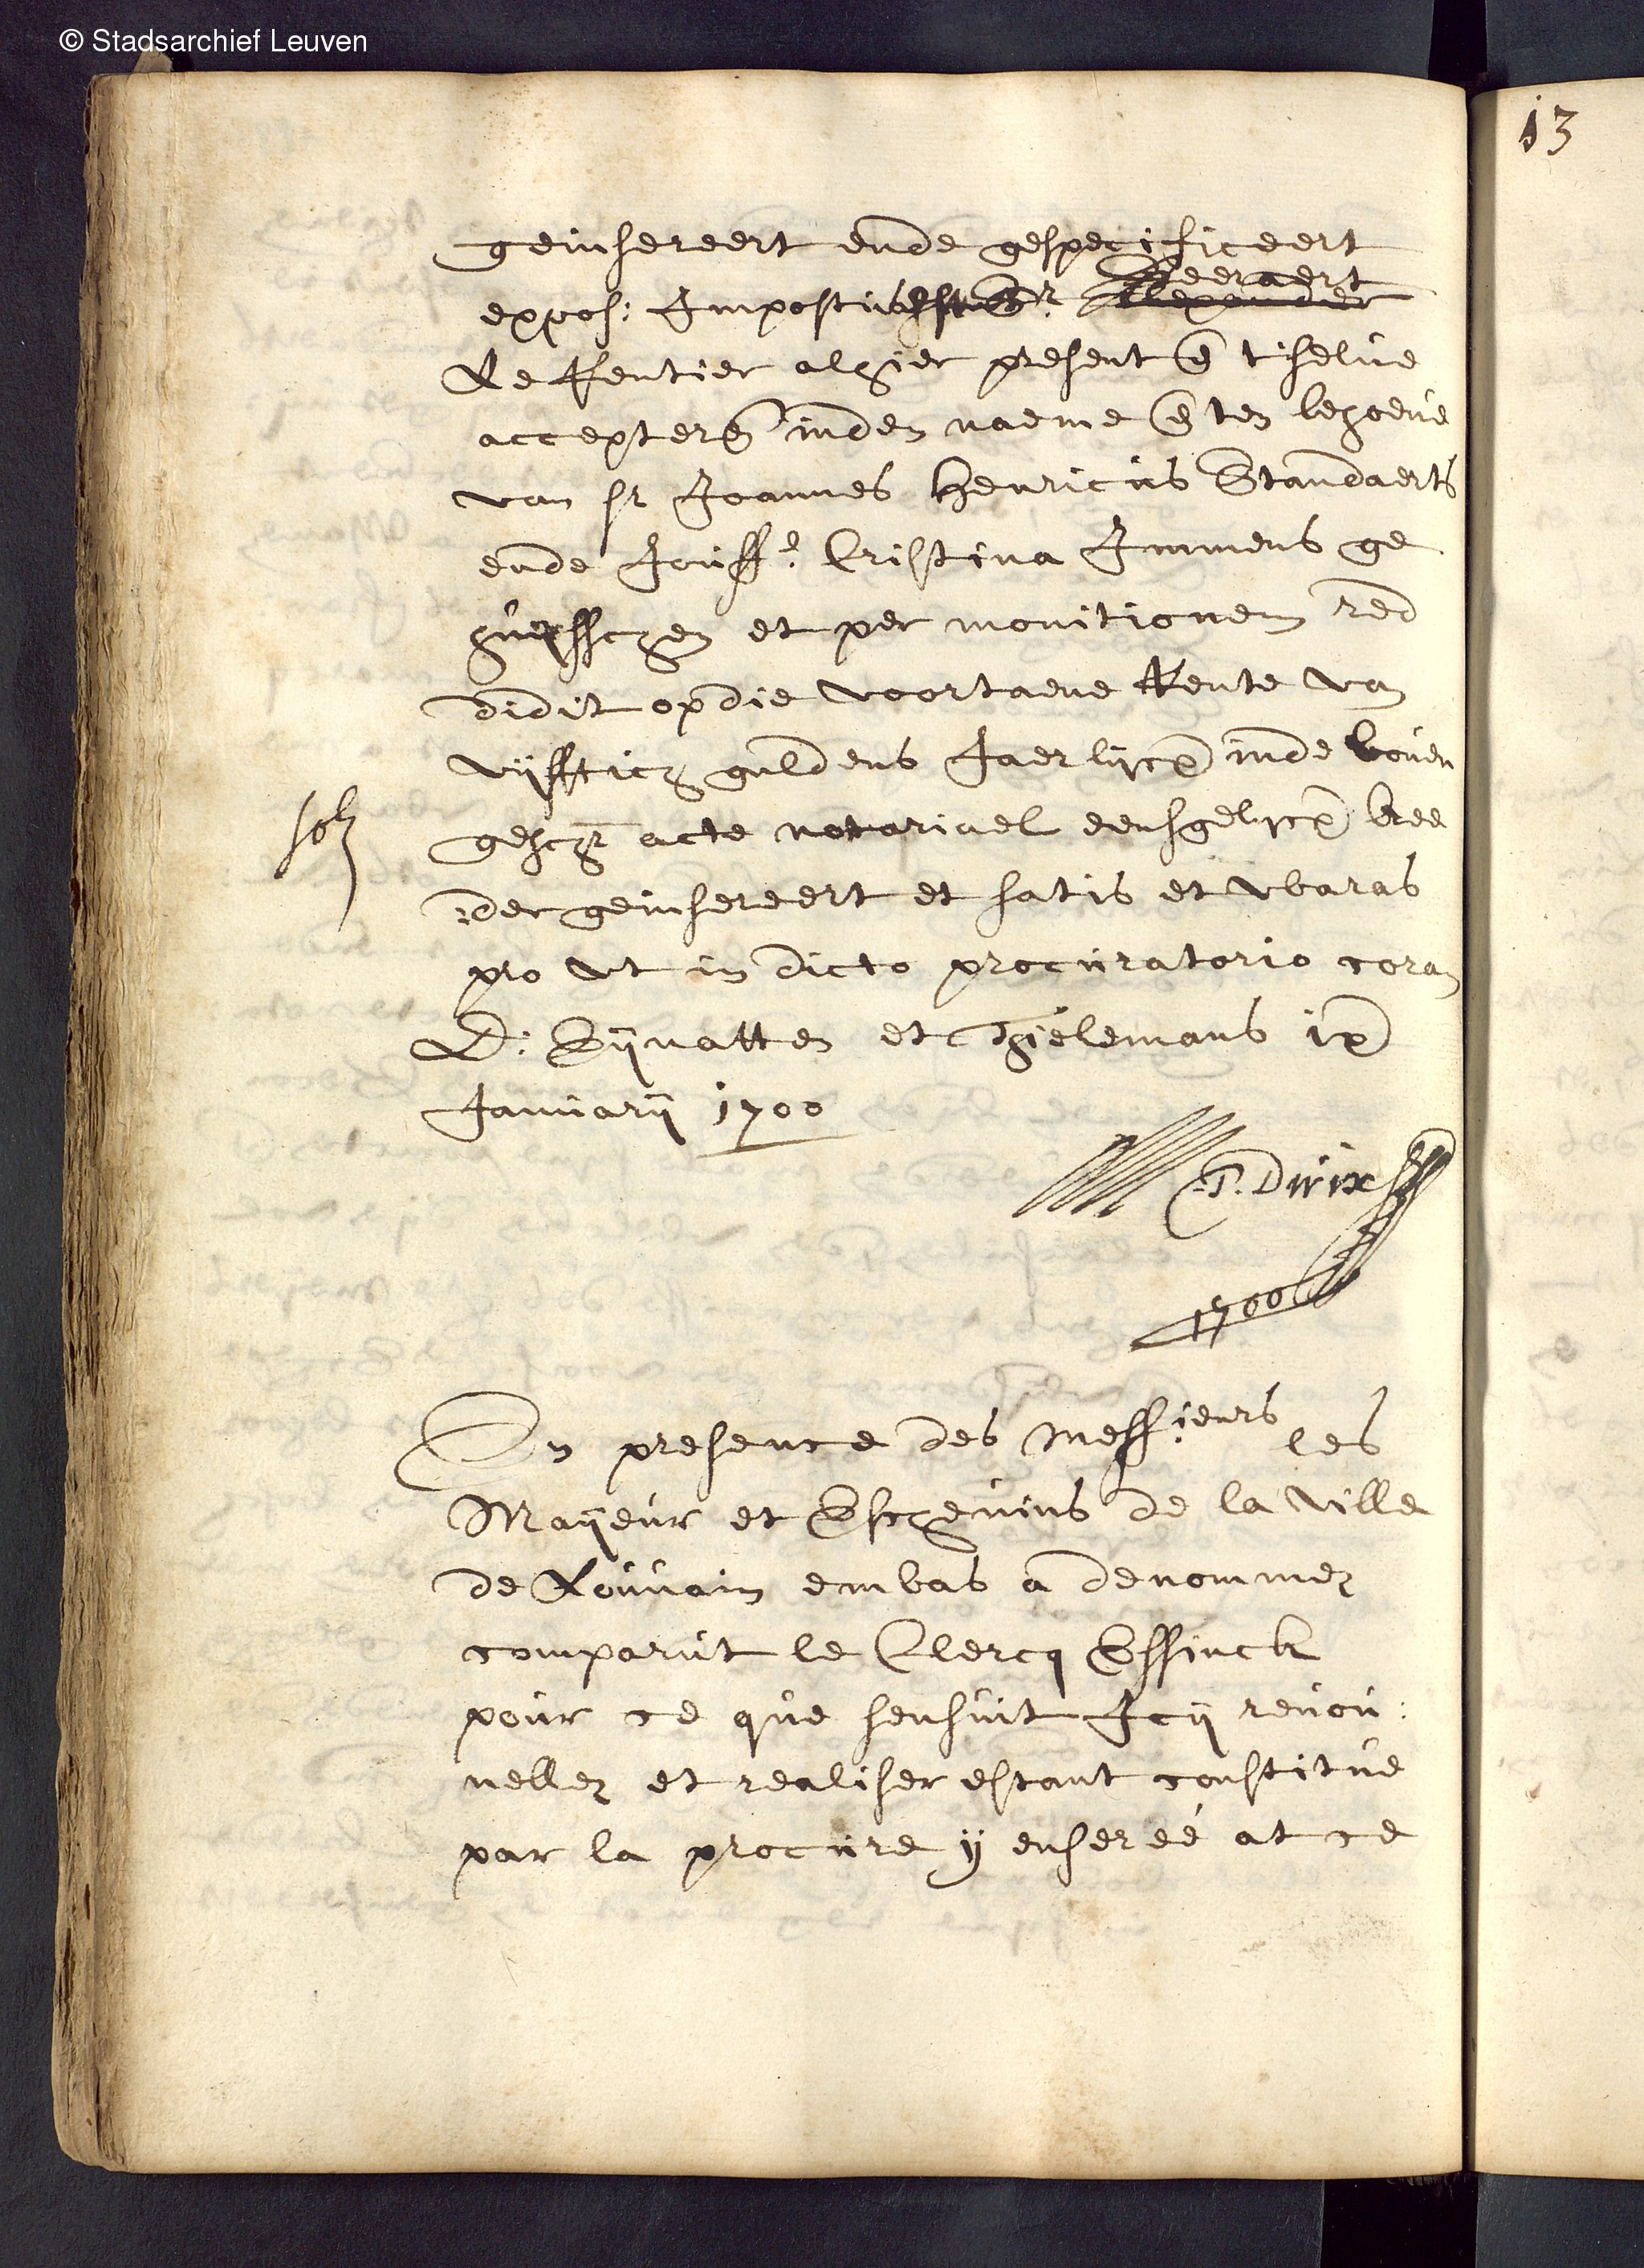 © Stadsarchief Leuven
13
geinsereert ende gespecificeert
Geeraert
expos: Impositus est Sr. Alexander
Le Rentier alhier present en̄ tselve
accepteren̄ inden naeme en̄ ten behoeve
van Sr Joannes Henricus Standaerts
ende Jouffe: Cristina Immens ge
huysschen et per monitionem red
didit op die voortaene Rente van
vijfftich guldens Jaerlijcx inde boven
geschr acte notariael eensgelycx bree
solt
:der geinsereert et satis et waras
pro ut in dicto procuratorio coram
D: Eijnatten et Thielemans ix
Januarij 1700
P. Dirix
1700
En presence des Messieurs les
Mayeur et Eschevins de la ville
de Louvain embas a denommez
comparut le Clercq Essinck
pour ce que sensuit Icij renou:
veller et realiser estant constitue
par la procure ij enserée at ce